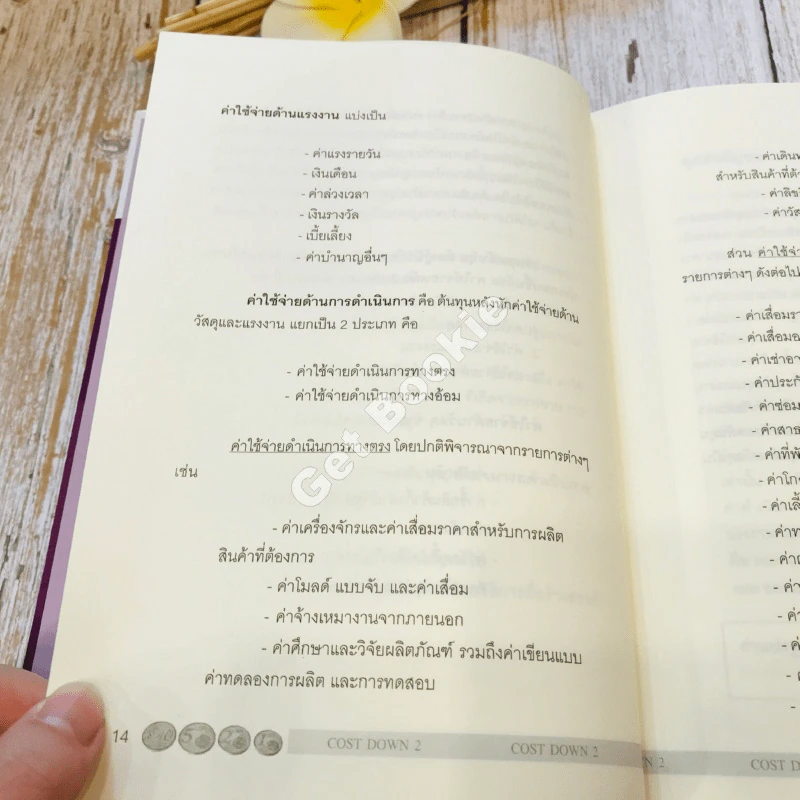 ค่าใช้จ่ายด้านแรงงาน แบ่งเป็น
- ค่าแรงรายวัน
- เงินเดือน
- ค่าล่วงเวลา
- เงินรางวัล
- เบี้ยเลี้ยง
- ค่าบำนาญอื่นๆ
ค่าใช้จ่ายด้านการดำเนินการ คือ ต้นทุนหลังหักค่าใช้จ่ายด้าน
วัสดุและแรงงาน แยกเป็น 2 ประเภท คือ
- ค่าใช้จ่ายดำเนินการทางตรง
- ค่าใช้จ่ายดำเนินการทางอ้อม
ค่าใช้จ่ายดำเนินการทางตรง โดยปกติพิจารณาจากรายการต่างๆ
เช่น
- ค่าเครื่องจักรและค่าเสื่อมราคาสำหรับการผลิต
สินค้าที่ต้องการ
- ค่าโมลด์ แบบจับ และค่าเสื่อม
- ค่าจ้างเหมางานจากภายนอก
- ค่าศึกษาและวิจัยผลิตภัณฑ์ รวมถึงค่าเขียนแบบ
ค่าทดลองการผลิต และการทดสอบ
14
COST DOWN 2 COST DOWN 2
Get Bookie
- ค่าเดินท
สำหรับสินค้าที่ต้
- ค่าลิข
- ค่าวัส
ส่วน ค่าใช้จ่
รายการต่างๆ ดังต่อไป
- ค่าเสื่อมรา
- ค่าเสื่อมอ
- ค่าเช่าอา
- ค่าประกั
- ค่าซ่อม
- ค่าสาธ
- ค่าที่พั
- ค่าโก
- ค่าเลี้
- ค่าท
- ค่า
- ค่
N 2 COST D